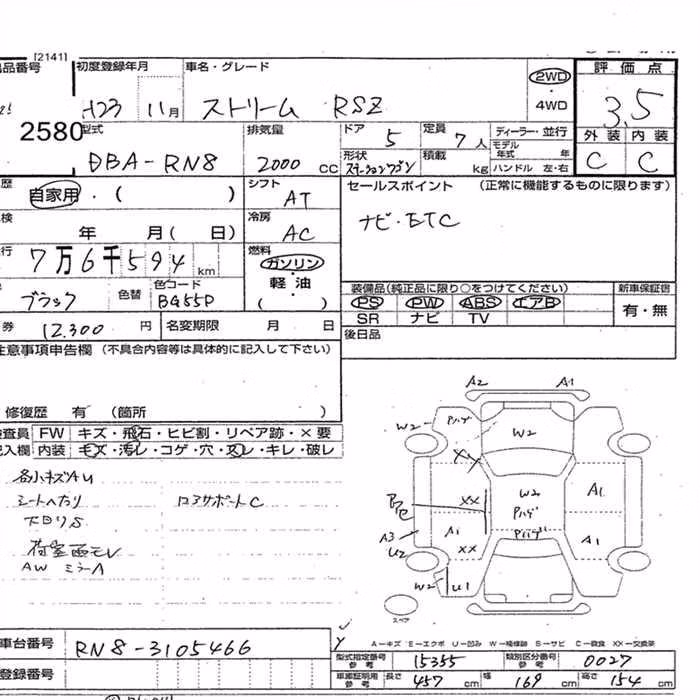 [2141]
品番号 初度登録年月 車名・グレード 評価点
H23 11月 ストリーム RSZ 2WD 4WD 3.5
2580
型式 排気量 ドア 5 定員 7人 ディーラー・並行 外装 内装
DBA-RN8 2000 CC 形状 ステーションワゴン 積載 kg モデル年式 年 ハンドル 左・右 C C
歴 自家用・( ) シフト AT セールスポイント (正常に機能するものに限ります)
検 年 月( 日) 冷房 AC ナビ・ETC
行 7万6千594 km 燃料 ガソリン・軽油 ( )
ブラック 色替 色コード BG55P
装備品(純正品に限り○をつけてください) 新車保証書
PS PW ABS エアB 有・無
SR ナビ TV
券 12,300 円 名変期限 月 日 後日品
注意事項申告欄 (不具合内容等は具体的に記入して下さい)
修復歴 有 (箇所 )
検査員 FW キズ・飛石・ヒビ割・リペア跡・×要
記入欄 内装 キズ・汚レ・コゲ・穴・スレ・キレ・破レ
各小キズAU
シートヘタリ ロアサポートC
下回りS
AW ミラーA
A2 A1
W2 Pハゲ W2
XX
XX W2 Pハゲ A1
A3 U2 A1 XX Pハゲ A1
W2 U1
スペア
A-キズ E-エクボ U-凹み W-補修跡 S-サビ C-腐食 XX-交換済
車台番号 RN8-3105466
型式指定番号 参考 15355 類別区分番号 参考 0027
登録番号
車庫証明用 参考 長さ 457 cm 幅 169 cm 高さ 154 cm